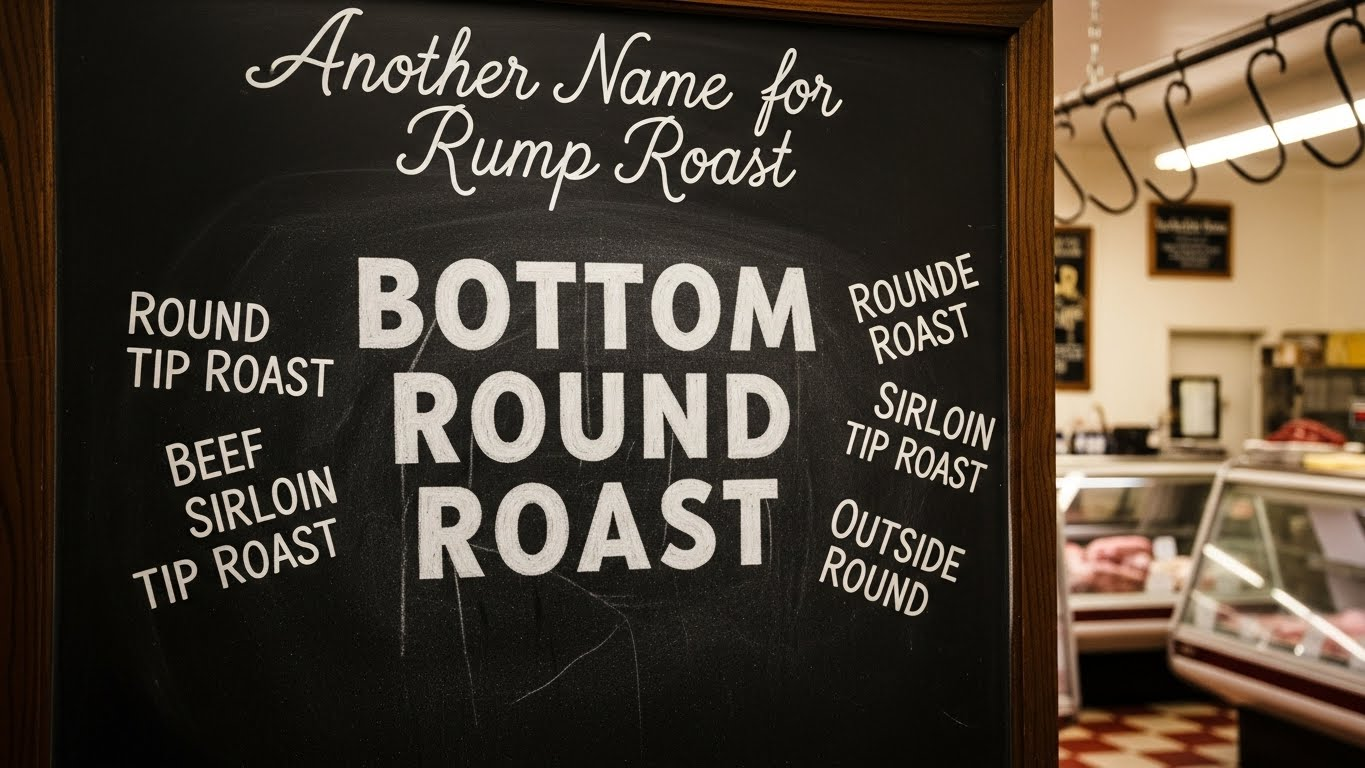 Another Name for
Rump Roast
BOTTOM
ROUND
ROAST
ROUND
TIP ROAST
BEEF
SIRLOIN
TIP ROAST
ROUNDE
ROAST
SIRLOIN
TIP ROAST
OUTSIDE
ROUND